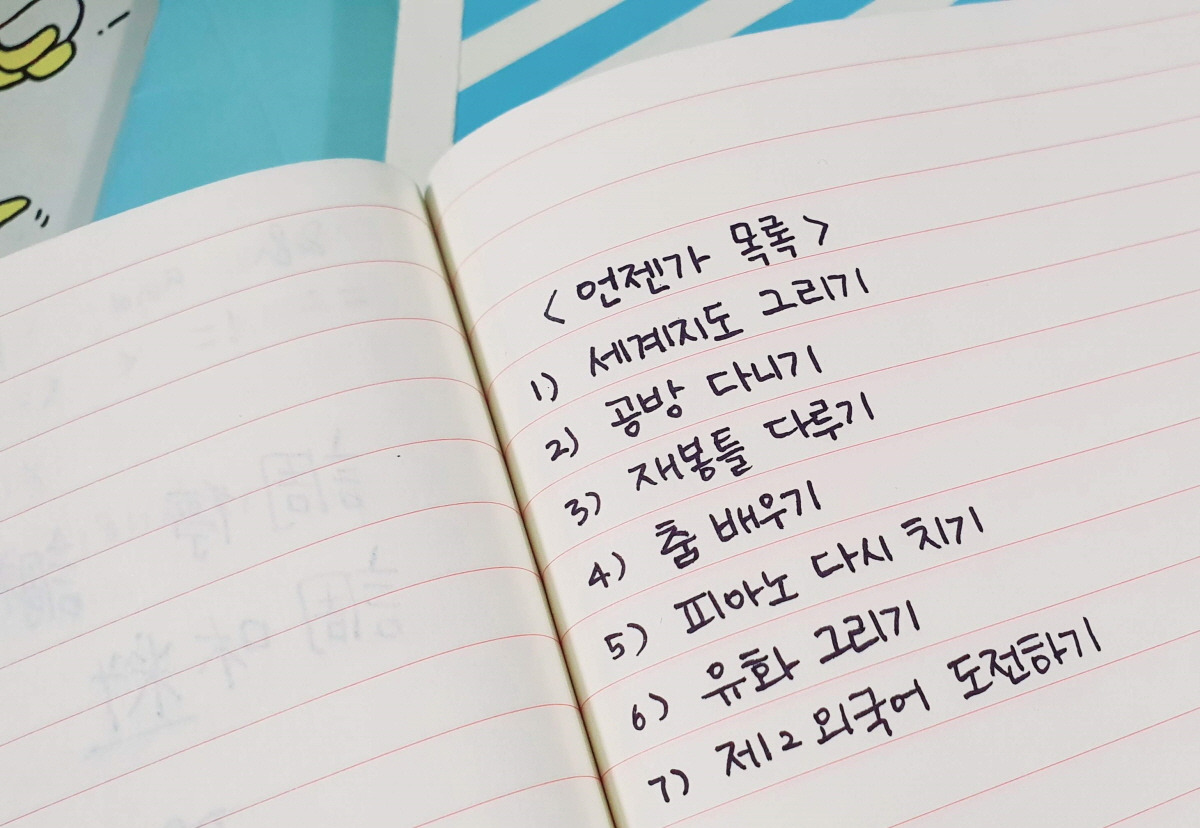 <언젠가 목록>
1) 세계지도 그리기
2) 공방 다니기
3) 재봉틀 다루기
4) 춤 배우기
5) 피아노 다시 치기
6) 유화 그리기
7) 제2외국어 도전하기